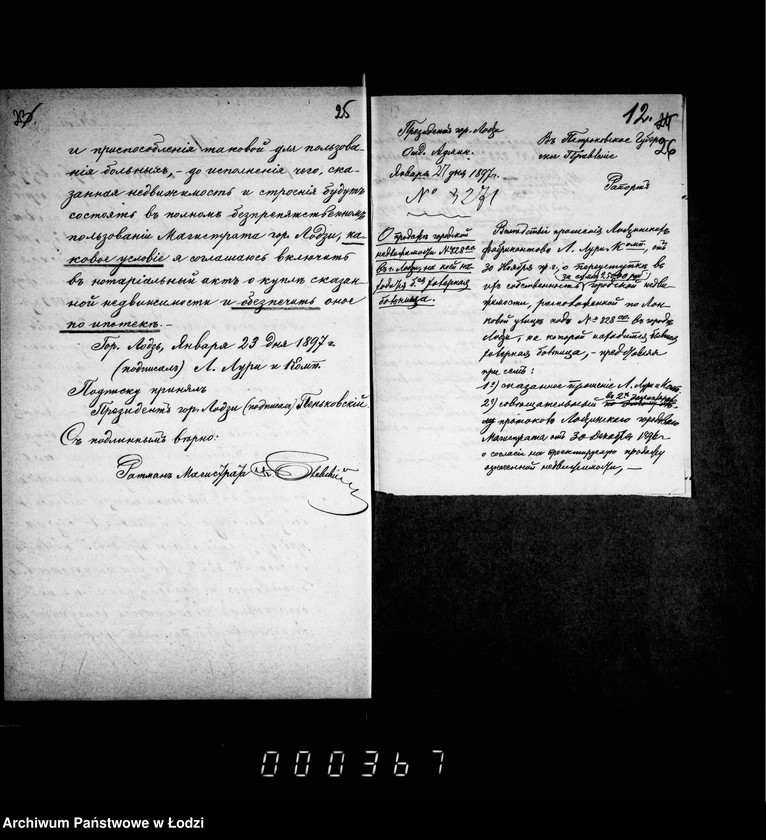 25
и приспособленія таковой для пользова-
нія больныхъ, - до исполненія чего, ска-
занная недвижимость и строенія будутъ
состоять въ полномъ безпрепятственномъ
пользованіи Магистрата гор. Лодзи, ка-
ковое условіе я соглашаюсь включить
въ нотаріальный актъ о куплѣ сказан-
ной недвижимости и обезпечить оное
по ипотекѣ. -
Гор. Лодзь, Января 23 дня 1897 г.
(подписалъ) Л. Лури и Комп.
Подписку принялъ
Президентъ гор. Лодзи (подписалъ) Пеньковскій.
Съ подлиннымъ вѣрно:
Ратманъ Магистрата
12.
26
Президентъ гор. Лодзи
Отд. Админ.
Января 27 дня 1897 г.
№ 3271
Въ Петроковское Губерн-
ское Правленіе
Рапортъ
О продажѣ городской
недвижимости № 828
въ г. Лодзи, на коей на-
ходился холерная
больница.
Вслѣдствіе прошенія Лодзинскихъ
фабрикантовъ Л. Лури и Комп. отъ
30 Ноября о переуступкѣ въ
ихъ собственность (за сумму 25000 руб) городской недви-
жимости, расположенной по
улицѣ подъ № 828 въ городѣ
Лодзи, на которой находится бывшая
холерная больница, - представляя
при семъ:
1) сказанное прошеніе Л. Лури и Комп.
2) совѣщательный въ 2хъ экземплярахъ
протоколъ Лодзинскаго городского
Магистрата отъ 30 Декабря 1896 г.
о согласіи на проектируемую продажу
означенной недвижимости, -
000367
Archiwum Państwowe w Łodzi